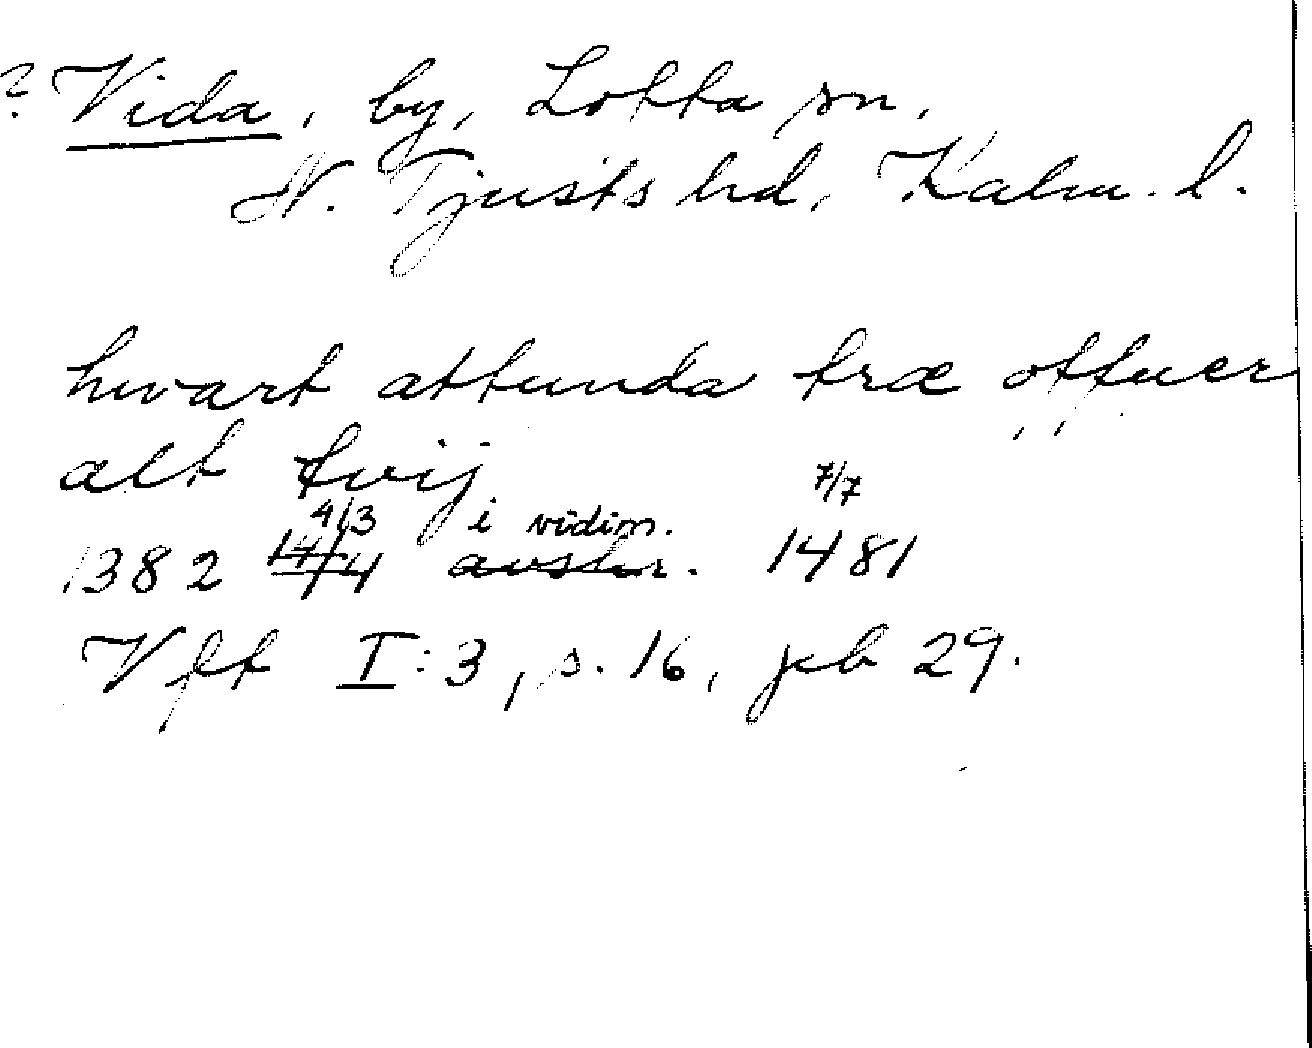 ? Vida, by, Lofta sn,
N. Tjusts hd, Kalm. l.
hwart attunda træ offuer
alt twij
4/3 i vidim. 7/7
1382 14/4 avskr. 1481
Vfft I:3, s. 16, peb 29.